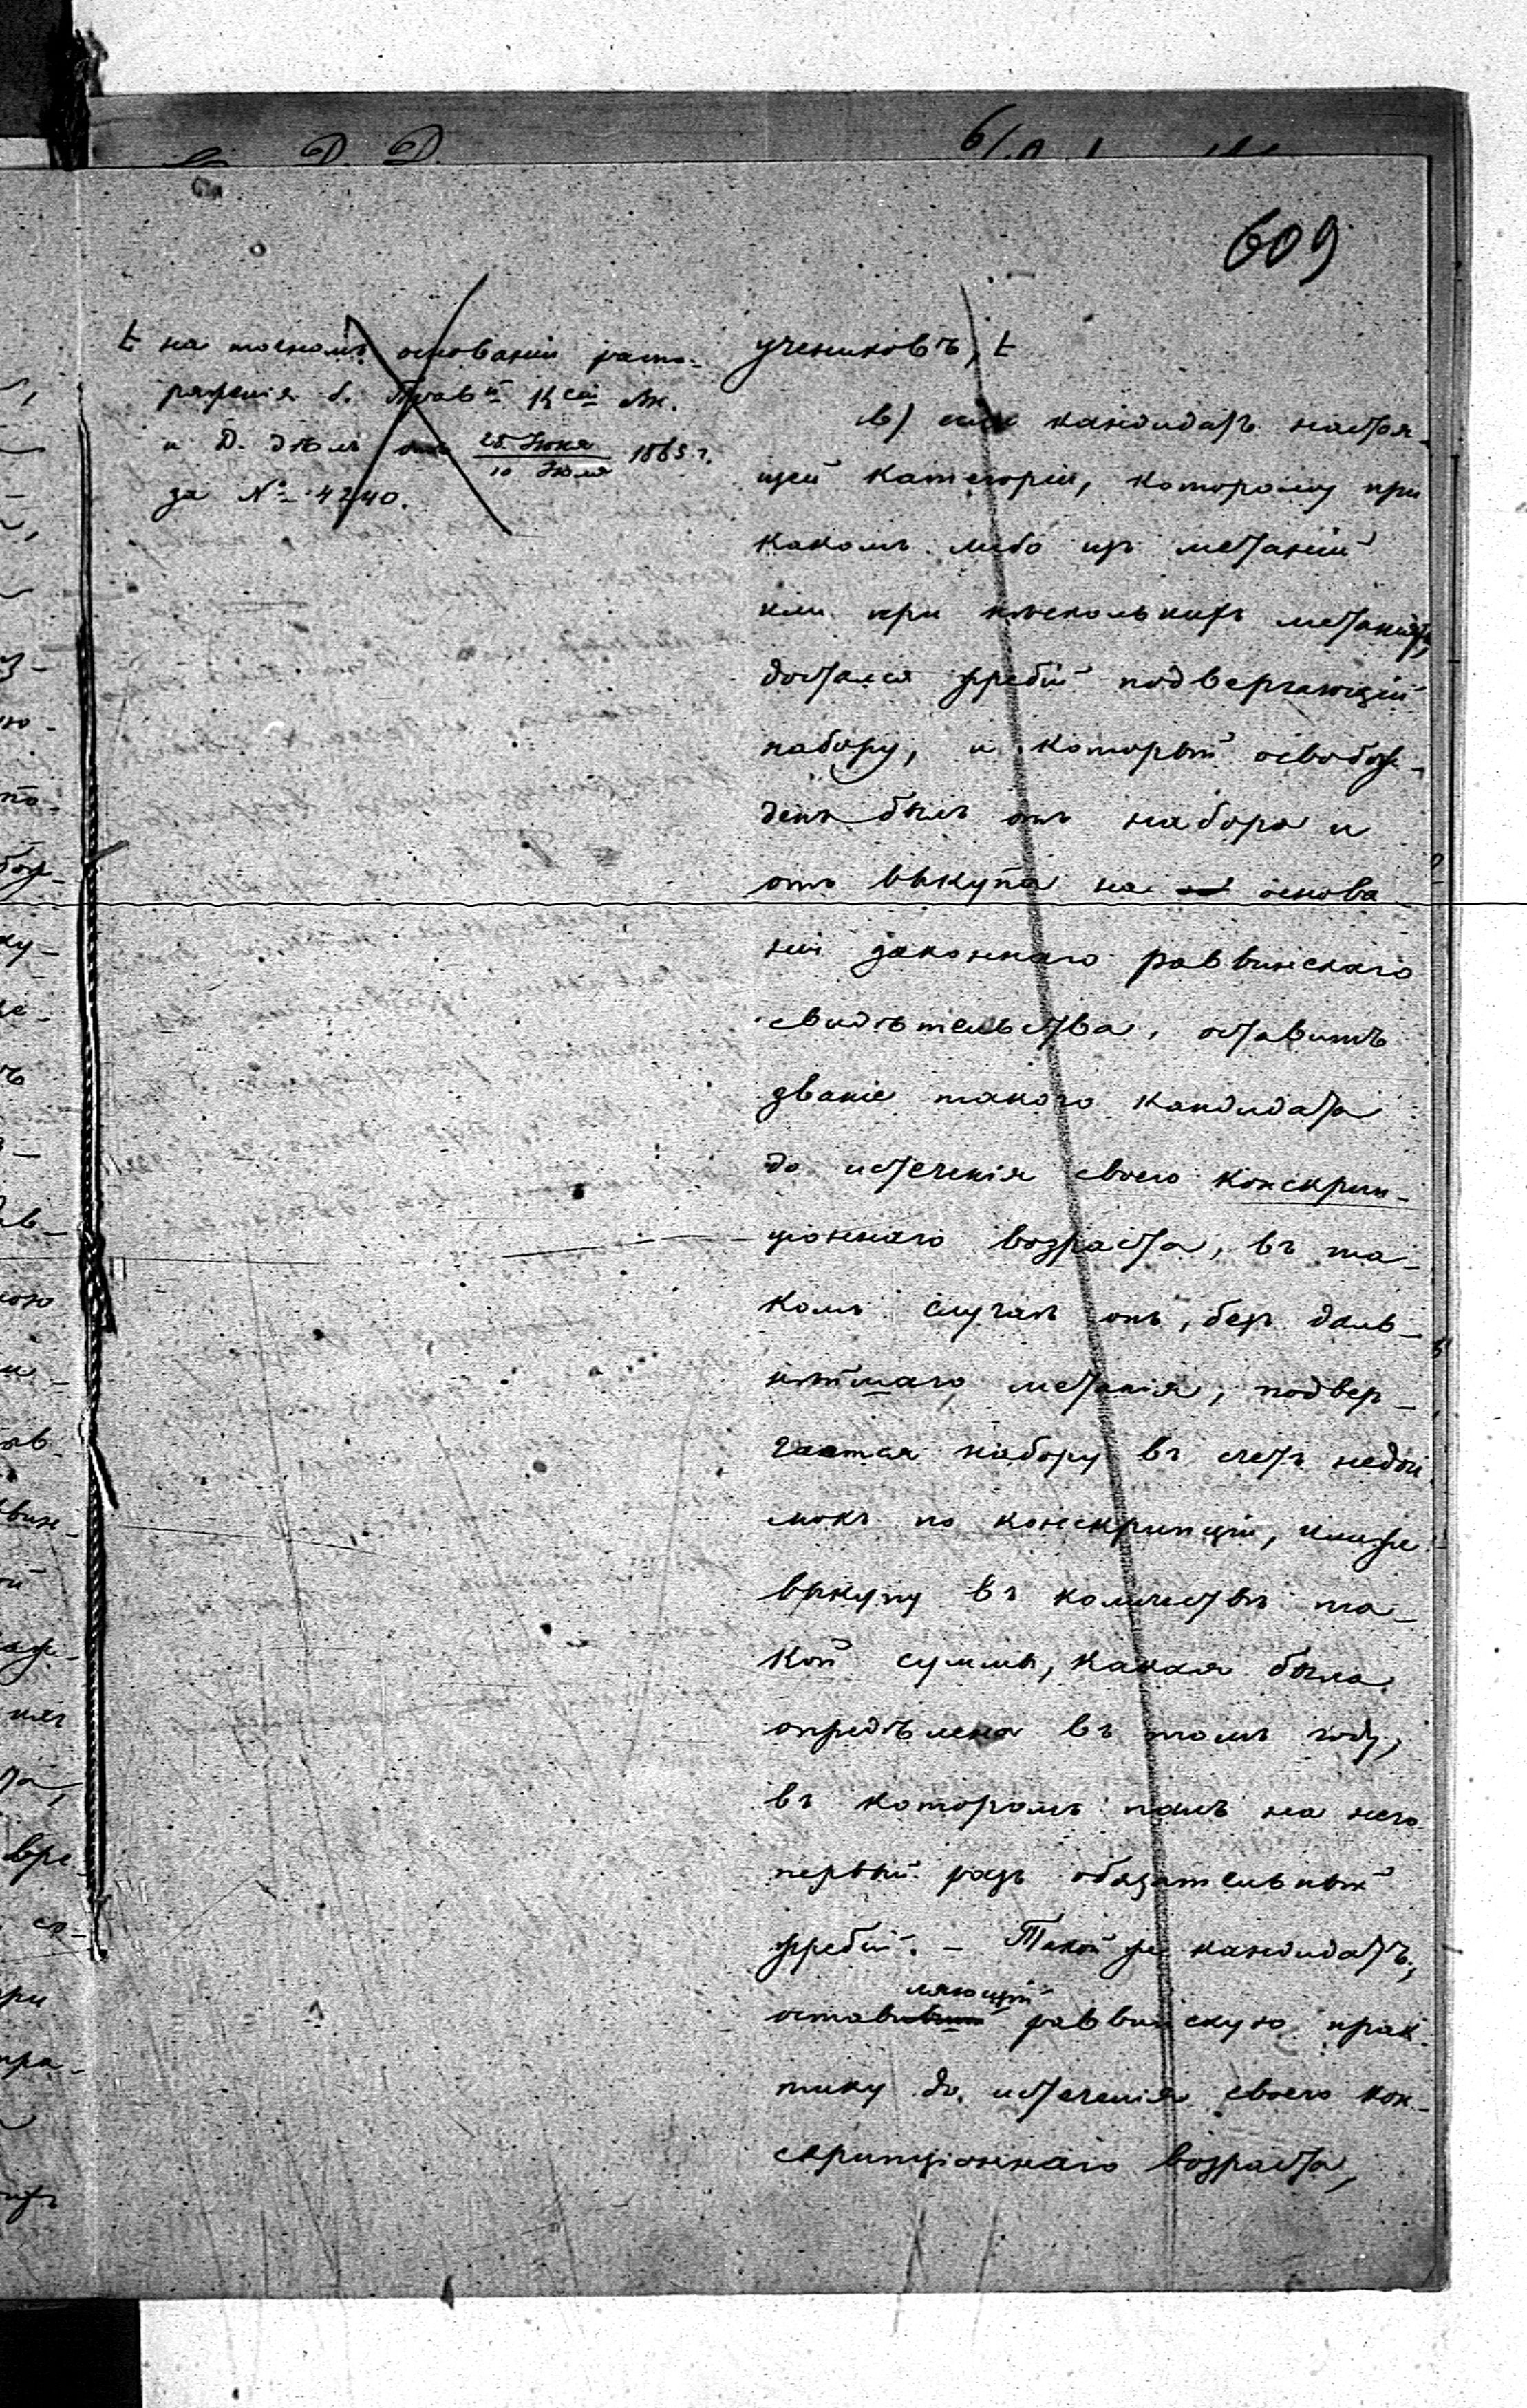 609
t на точномъ основаніи распо-
ряженія б. Прав. Ксіи Вн.
и Д. дѣлъ отъ 28 Іюня / 10 Іюля 1865 г.
за № 4240.
учениковъ, t
в) если кандидатъ настоя-
щей категоріи, которому при
какомъ либо изъ метаній
или при нѣсколькихъ метаніяхъ,
достался жребій подвергающій
набору, и который освобож-
денъ былъ отъ набора и
отъ выкупа на основа-
ніи законнаго раввинскаго
свидѣтельства, оставитъ
званіе такого кандидата
до истеченія своего конскрип-
ціоннаго возраста, въ та-
комъ случаѣ онъ, безъ даль-
нѣйшаго метанія, подвер-
гается набору въ счетъ недои-
мокъ по конскрипціи, илиже
выкупу въ количествѣ та-
кой суммы, какая была
опредѣлена въ томъ году,
въ которомъ палъ на него
первый разъ обязательный
жребій. – Такой же кандидатъ,
ляющій
оставившій раввинскую прак-
тику до истеченія своего кон-
скрипціоннаго возраста,